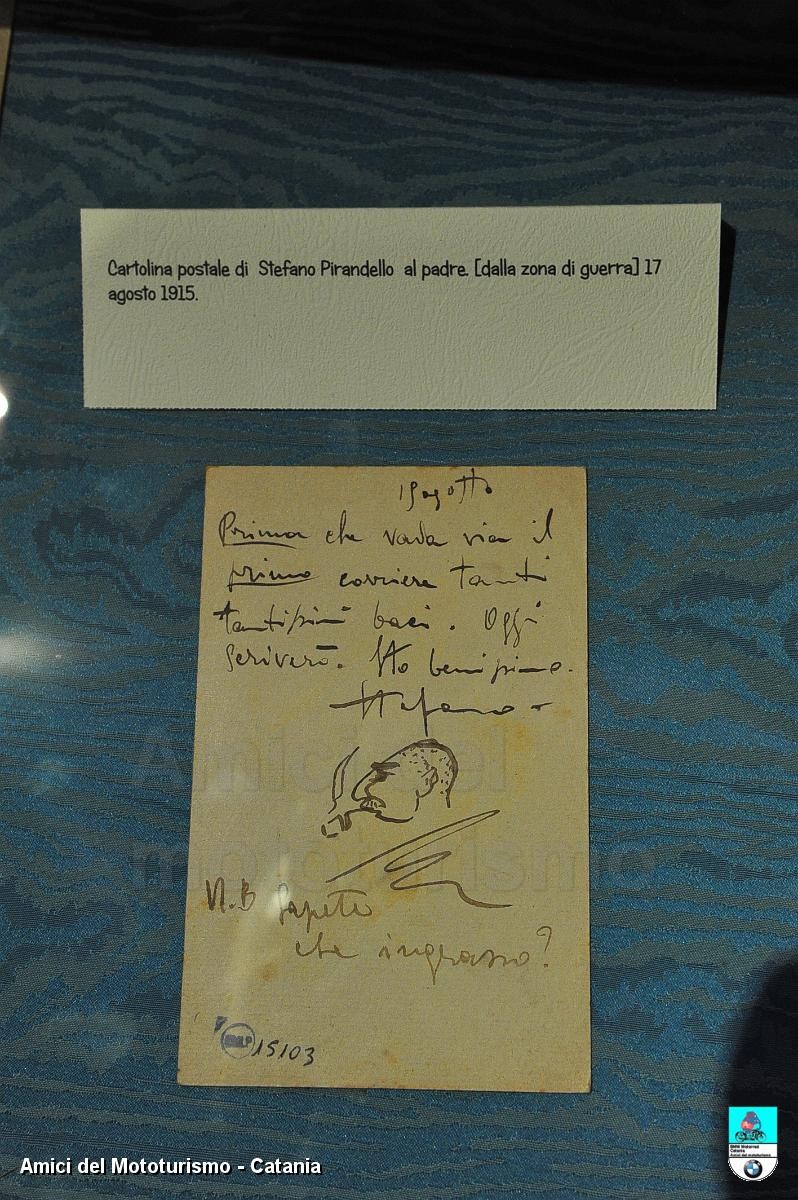 Cartolina postale di Stefano Pirandello al padre. [dalla zona di guerra] 17
agosto 1915.
agosto
Prima che vada via il
primo corriere tanti
tantissimi baci. Oggi
scriverò. Sto benissimo.
Stefano
Amici del
mototurismo
N.B Sapete
che ingrasso?
15103
Amici del Mototurismo - Catania
BMW Motorrad
Catania
Amici del mototurismo